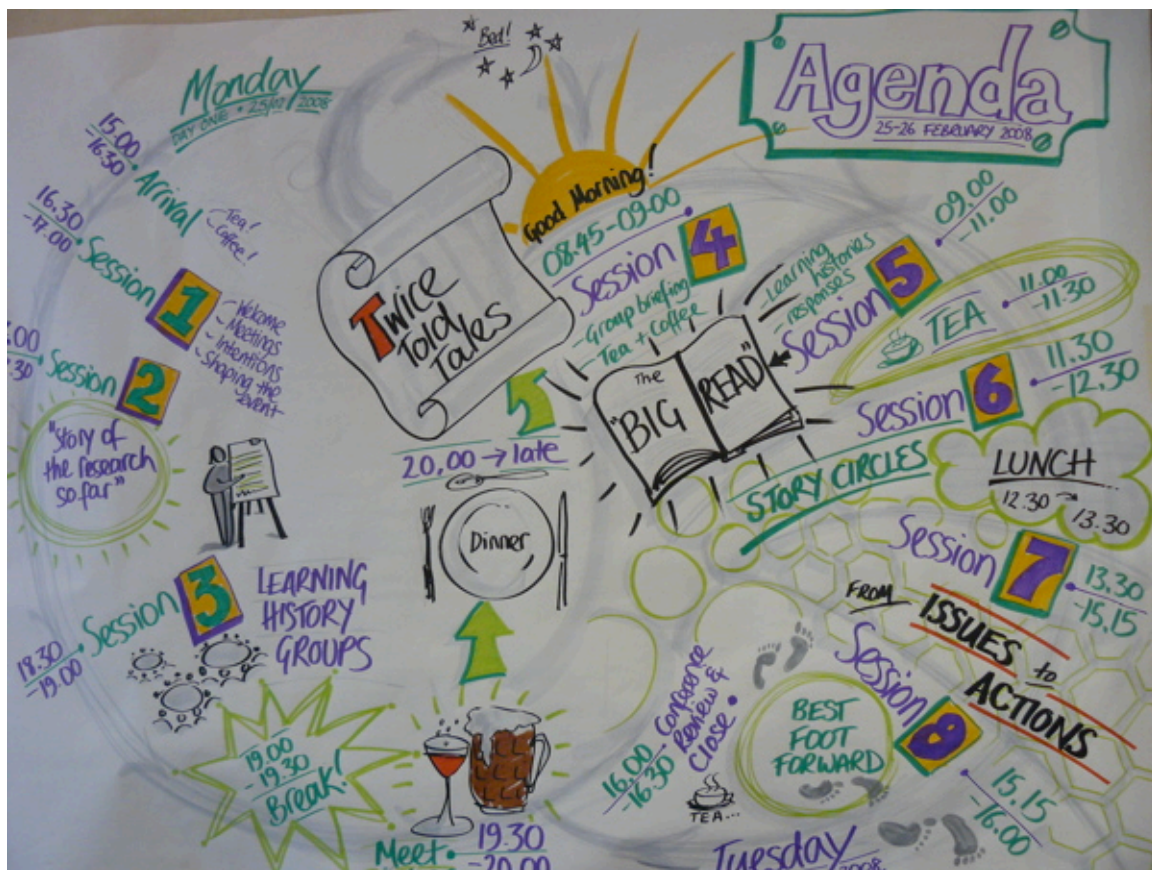 Agenda
25-26 FEBRUARY 2008
Monday
DAY ONE • 25/02/2008
15.00
-16.30
Arrival
- Tea!
- Coffee!
16.30
-17.00
Session 1
- Welcome
- Meetings
- Intentions
- Shaping the
event
:00
.30
Session 2
"Story of
the research
so far"
18.30
-19.00
Session 3
LEARNING
HISTORY
GROUPS
19.00
-19.30
Break!
Meet • 19.30
-20.00
Dinner
20.00 → late
Twice
Told
Tales
Bed!
Good Morning!
08.45-09.00
Session 4
- Group briefing
- Tea + Coffee
09.00
-11.00
Session 5
- Learning
histories
- responses
The
"BIG
READ"
TEA
11.00
-11.30
11.30
-12.30
Session 6
STORY CIRCLES
LUNCH
12.30
13.30
Session 7
13.30
-15.15
FROM
ISSUES to
ACTIONS
Session 8
15.15
-16.00
BEST
FOOT
FORWARD
16.00
-16.30
- Conference
Review &
Close •
TEA...
Tuesday
2008